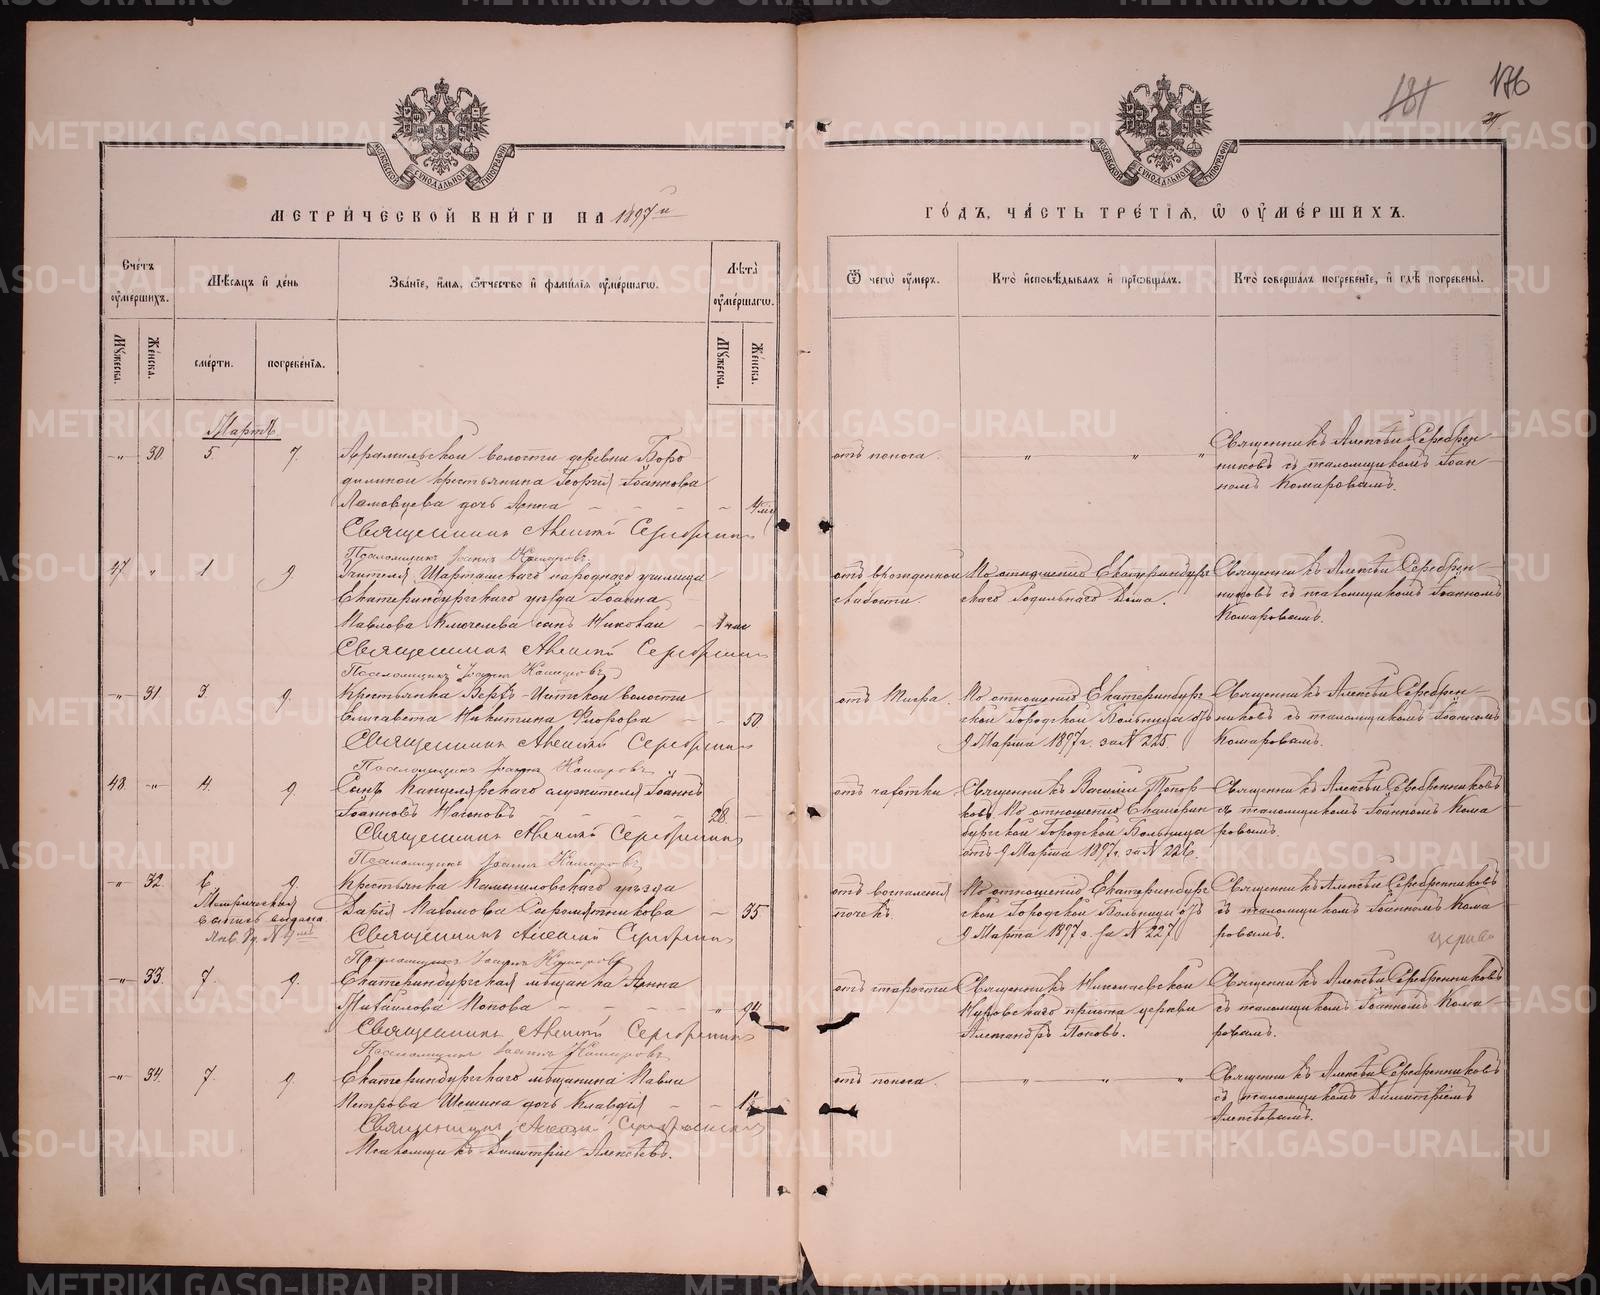 181 176
МОСКОВСКОЙ СѴНОДАЛЬНОЙ ТИПОГРАФІИ
МОСКОВСКОЙ СѴНОДАЛЬНОЙ ТИПОГРАФІИ
МЕТРИЧЕСКОЙ КНИГИ НА 1897й
ГОДЪ, ЧАСТЬ ТРЕТІЯ, Ѡ ОУМЕРШИХЪ.
Счетъ оумершихъ.
Мѣсяцъ и день
Званіе, имя, ѿчество и фамилія оумершагѡ.
Лѣта оумершагѡ.
Ѿ чегѡ оумеръ.
Кто исповѣдывалъ и пріѡбщалъ.
Кто совершалъ погребеніе, и гдѣ погребены.
Мужеска. Женска. смерти. погребенія. Мужеска. Женска.
Мартъ.
-„- 30. 5. 7. Арамильской волости деревни Боро
диной крестьянина Георгія Іоаннова
дочь Анна
Священникъ Алексѣй Серебрен
Псаломщикъ Іоаннъ Комаровъ
отъ поноса. „ „ „
Священникъ Алексѣй Серебрен-
никовъ съ псаломщикомъ Іоан-
номъ Комаровымъ.
47 „ 1 9 Учителя Шарташскаго народнаго училища
Екатеринбургскаго уѣзда Іоанна
Павлова Ключелева сынъ Николай
Священникъ Алексѣй Серебрен
Псаломщикъ Іоаннъ Комаровъ
отъ врожденной
слабости.
По отношенію Екатеринбург
скаго Родильнаго Дома.
Священникъ Алексѣй Серебрен-
никовъ съ псаломщикомъ Іоанномъ
Комаровымъ.
-„- 31. 3. 9. Крестьянка Верхъ-Исетской волости
Елисавета Никитина Флорова - - 50.
Священникъ Алексѣй Серебрен
Псаломщикъ Іоаннъ Комаровъ
отъ тифа.
По отношенію Екатеринбург
ской Городской Больницы отъ
9 Марта 1897 г. за № 225.
Священникъ Алексѣй Серебрен-
никовъ съ псаломщикомъ Іоанномъ
Комаровымъ.
48. -„- 4. 9. Сынъ Канцелярскаго служителя Іоаннъ
Іоанновъ 28.
Священникъ Алексѣй Серебрен
Псаломщикъ Іоаннъ Комаровъ
отъ чахотки.
Священникъ Василій Топор
ковъ. По отношенію Екатерин
бургской Городской Больницы
отъ 9 Марта 1897 г. за № 226.
Священникъ Алексѣй Серебренниковъ
съ псаломщикомъ Іоанномъ Кома
ровымъ.
-„- 32. 6. 9. Крестьянка Камышловскаго уѣзда
Дарія Пахомова Сыромятникова - 35
Священникъ Алексѣй Серебрен
Псаломщикъ Іоаннъ Комаровъ
Метрическая
выпись выдана
отъ воспаленія
почекъ.
По отношенію Екатеринбург
ской Городской Больницы отъ
9 Марта 1897 г. за № 227
Священникъ Алексѣй Серебренниковъ
съ псаломщикомъ Іоанномъ Кома
ровымъ.
-„- 33. 7. 9. Екатеринбургская мѣщанка Анна
Михайлова Попова
Священникъ Алексѣй Серебрен
Псаломщикъ Іоаннъ Комаровъ
отъ старости
Священникъ Николаевской
церкви
Александръ Поповъ.
Священникъ Алексѣй Серебренниковъ
съ псаломщикомъ Іоанномъ Кома
ровымъ.
-„- 34. 7. 9. Екатеринбургскаго мѣщанина Павла
Петрова Шешина дочь Клавдія
Священникъ Алексѣй
Псаломщикъ Димитрій Алексѣевъ.
отъ поноса. „ „ „
Священникъ Алексѣй Серебренниковъ
съ псаломщикомъ Димитріемъ
Алексѣевымъ.
METRIKI.GASO-URAL.RU